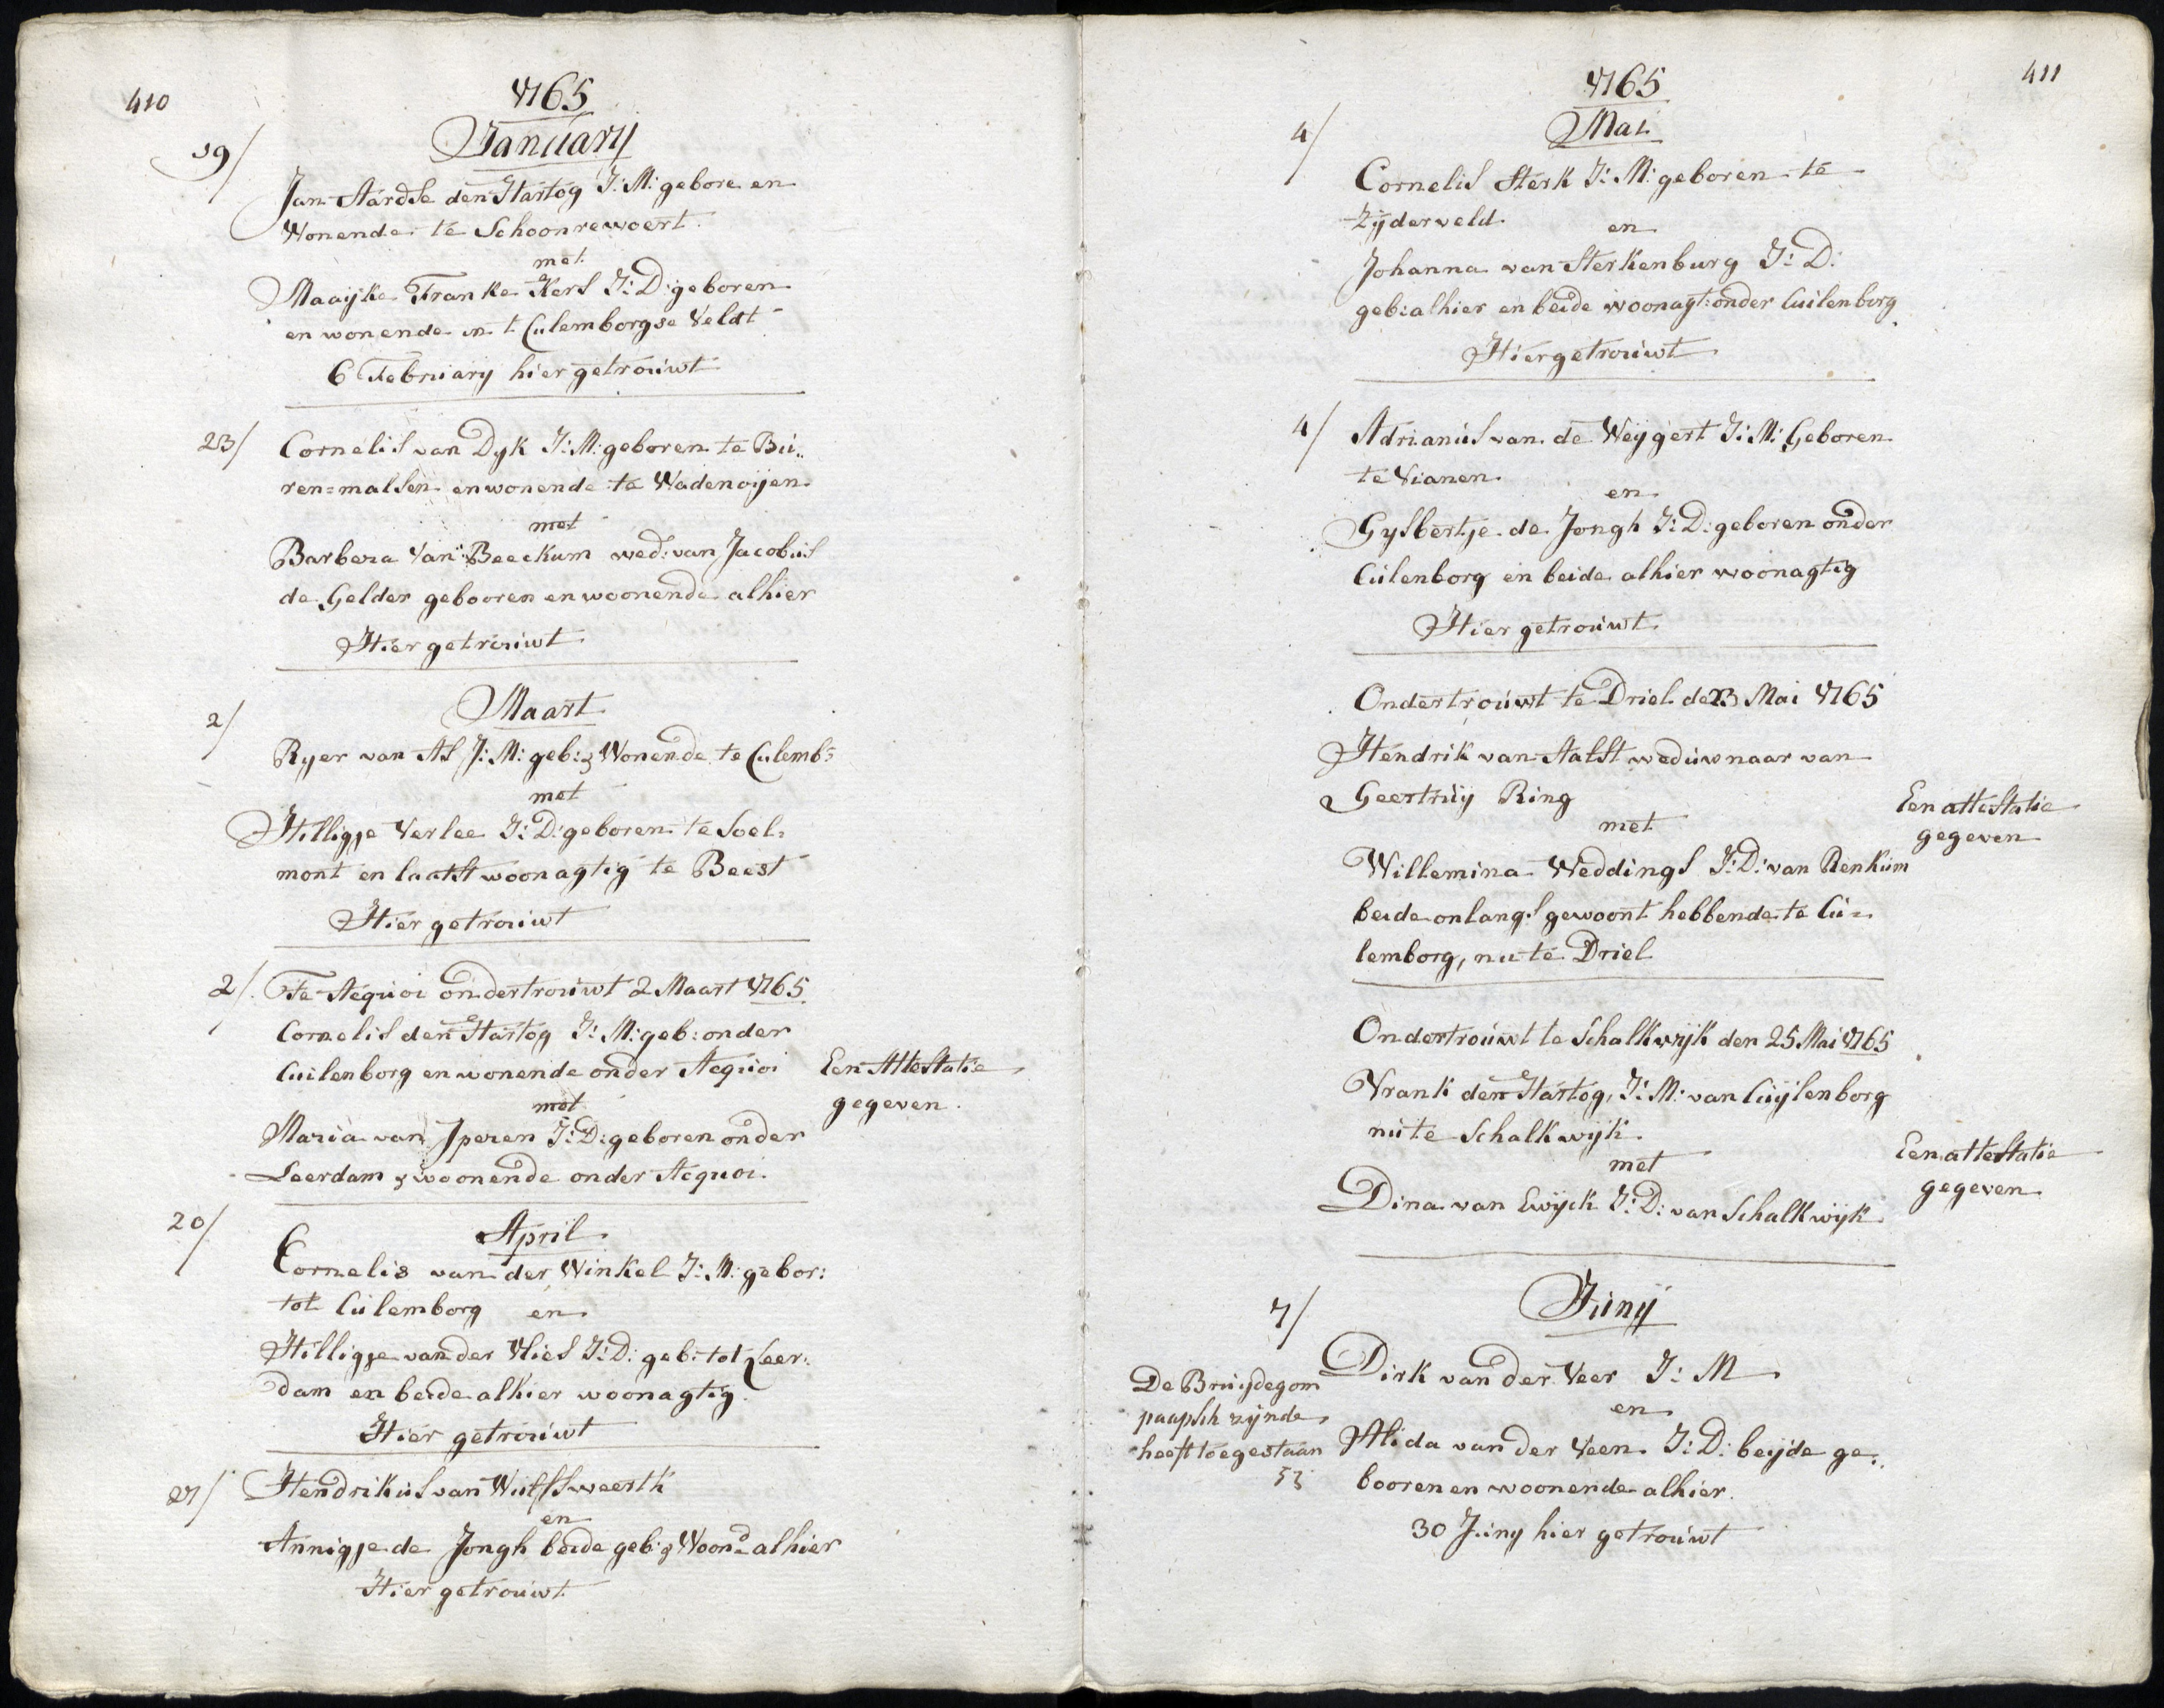 410
1765
January
19/
Jan Aardse den Hartog J: M: gebore en
Wonende te Schoonrewoert
met
Maayke Franke Kers J: D: geboren
en wonende in t Culemborgse Veldt
6 February hier getrouwt
23/
Cornelis van Dyk J: M: geboren te Bu„
ren=malsen en wonende te Wadenoijen
met
Barbera Van Beeckum wed: van Jacobus
de Gelder gebooren en woonende alhier
Hier getrouwt
Maart
2/
Ryer van As J: M: geb: & Wonende te Culemb=
met
Hilligje Verlee J: D: geboren te Soel=
mont en laatst woonagtig te Beest
Hier getrouwt
2/. Te Aequoi ondertrouwt 2 Maart 1765
Cornelis den Hartog J: M: geb: onder
Cuilenborg en wonende onder Acquoi
Een Attestatie
gegeven
met
Maria van Iperen J: D: geboren onder
Leerdam & woonende onder Acquoi
20/
April
Cornelis van der Winkel J: M: gebor:
tot Culemborg en
Hilligje van der Vlies J: D: geb: tot Leer:
dam en beide alhier woonagtig
Hier getrouwt
27/
Hendrikus van Wulfsweerth
en
Annigje de Jongh beide geb: & Woonde alhier
Hier getrouwt
411
1765
Mai
4/
Cornelis Sterk J: M: geboren te
Zijderveld
en
Johanna van Sterkenburg J: D:
geb: alhier en beide woonagt: onder Cuilenborg
Hier getrouwt
4/
Adrianus van de Weygert J: M: Geboren
te Vianen
en
Gysbertje de Jongh J: D: geboren onder
Culenborg en beide alhier woonagtig
Hier getrouwt
Ondertrouwt te Driel de 23 Mai 1765
Hendrik van Aalst weduwnaar van
Geertruy Ring
Een attestatie
gegeven
met
Willemina Weddings J: D: van Renkum
beide onlangs gewoont hebbende te Cu=
lemborg, nu te Driel
Ondertrouwt te Schalkwyk den 25 Mai 1765
Vrank den Hartog, J: M: van Cuylenborg
nu te Schalkwijk
Een attestatie
gegeven
met
Dina van Ewijck J: D: van Schalkwijk
7/
Juny
Dirk van der Veer J: M
De Bruijdegom
paapsch zijnde
heeft toegestaan
en
Alida van der Veen J: D: beijde ge„
booren en woonende alhier
30 Juny hier getrouwt